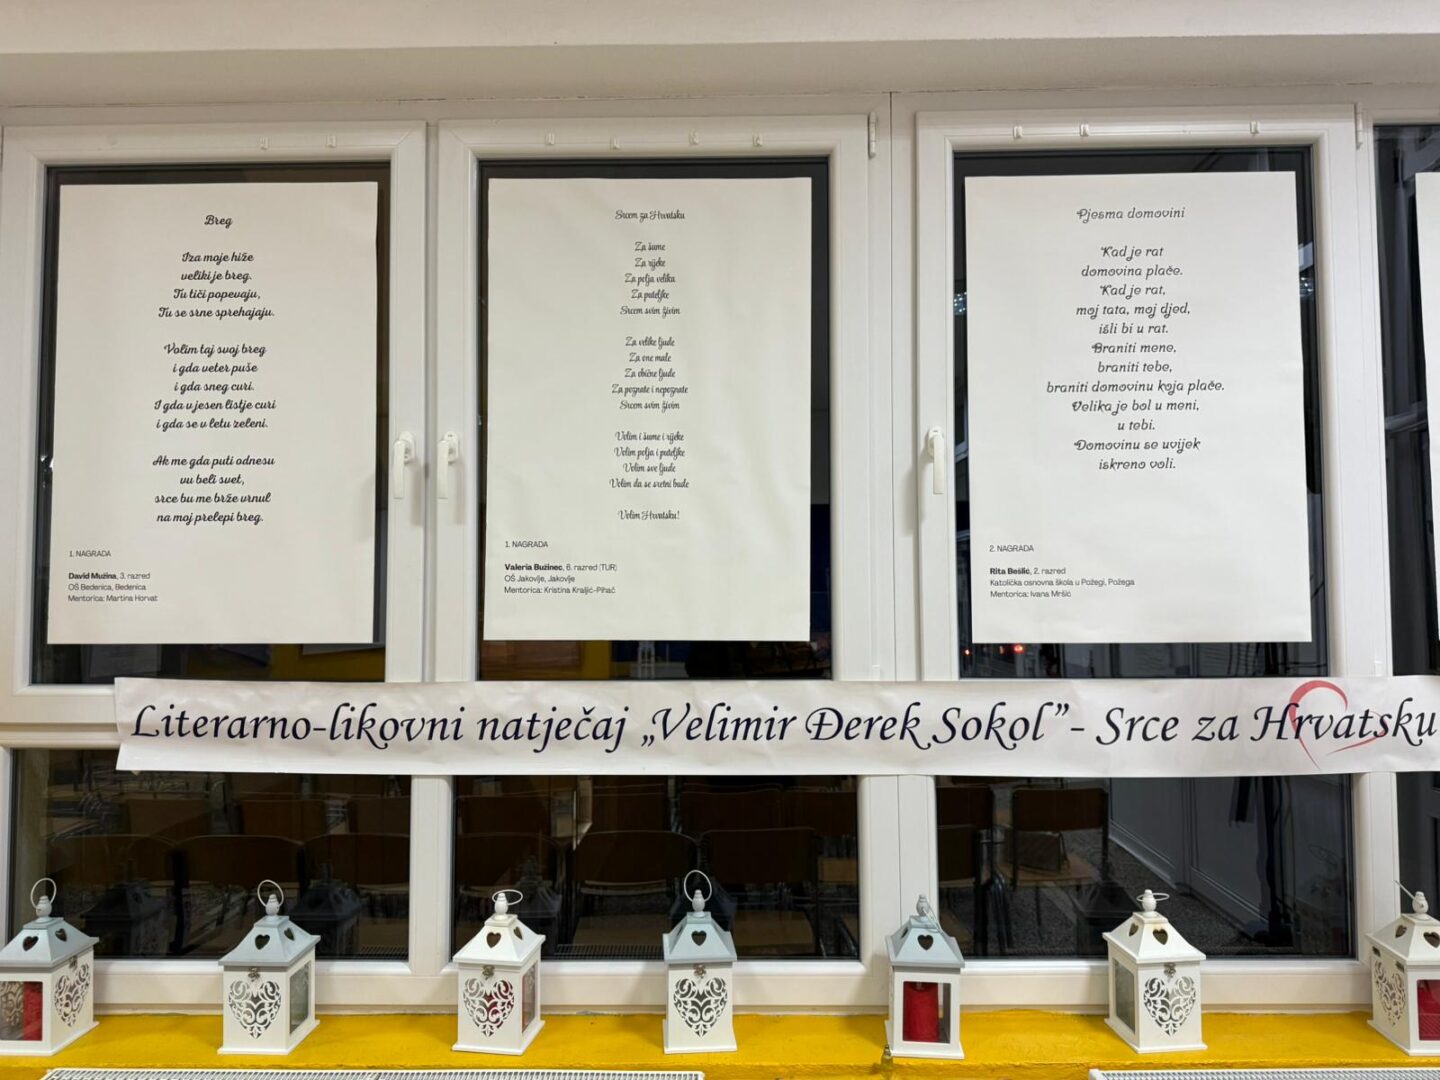 Breg
Iza moje hiže
veliki je breg.
Tu tiči popevaju,
Tu se srne sprehajaju.
Volim taj svoj breg
i gda veter puše
i gda sneg curi.
I gda v jesen listje curi
i gda se v letu zeleni.
Ak me gda puti odnesu
vu beli svet,
srce bu me brže vrnul
na moj prelepi breg.
1. NAGRADA
David Mužina, 3. razred
OŠ Bedenica, Bedenica
Mentorica: Martina Horvat
Srcem za Hrvatsku
Za šume
Za rijeke
Za polja velika
Za puteljke
Srcem svim živim
Za velike ljude
Za one male
Za obične ljude
Za poznate i nepoznate
Srcem svim živim
Volim i šume i rijeke
Volim polja i puteljke
Volim sve ljude
Volim da se sretni bude
Volim Hrvatsku!
1. NAGRADA
Valeria Bužinec, 6. razred (TUR)
OŠ Jakovlje, Jakovlje
Mentorica: Kristina Kraljić-Pihač
Pjesma domovini
Kad je rat
domovina plače.
Kad je rat,
moj tata, moj djed,
išli bi u rat.
Braniti mene,
braniti tebe,
braniti domovinu koja plače.
Velika je bol u meni,
u tebi.
Domovinu se uvijek
iskreno voli.
2. NAGRADA
Rita Bešlić, 2. razred
Katolička osnovna škola u Požegi, Požega
Mentorica: Ivana Mršić
Literarno-likovni natječaj „Velimir Đerek Sokol” - Srce za Hrvatsku